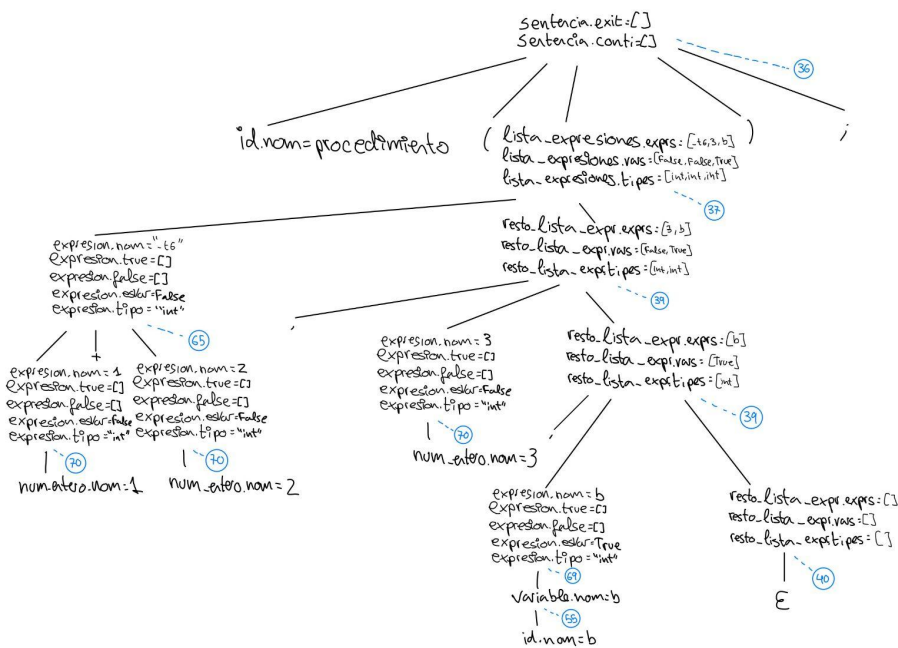 sentencia.exit:=[]
Sentencia.conti:=[]
36
id.nom=procedimiento
(
lista_expresiones.exprs:[-t6,3,b]
lista_expresiones.vars:=[False,False,True]
lista_expresiones.tipes:[int,int,int]
)
;
37
expresion.nom="-t6"
expresion.true=[]
expresion.false=[]
expresion.esVar=False
expresion.tipo="int"
65
resto_lista_expr.exprs:[3,b]
resto_lista_expr.vars:=[False,True]
resto_lista_expr.tipes:[int,int]
39
expresion.nom=1
expresion.true=[]
expresion.false=[]
expresion.esVar=False
expresion.tipo="int"
70
num_entero.nom=1
+
expresion.nom=2
expresion.true=[]
expresion.false=[]
expresion.esVar=False
expresion.tipo="int"
70
num_entero.nom=2
,
expresion.nom=3
expresion.true=[]
expresion.false=[]
expresion.esVar=False
expresion.tipo="int"
70
num_entero.nom=3
resto_lista_expr.exprs:[b]
resto_lista_expr.vars:=[True]
resto_lista_expr.tipes:[int]
39
,
expresion.nom=b
expresion.true=[]
expresion.false=[]
expresion.esVar=True
expresion.tipo="int"
69
variable.nom=b
55
id.nom=b
resto_lista_expr.exprs:[]
resto_lista_expr.vars:[]
resto_lista_expr.tipes:[]
40
ε